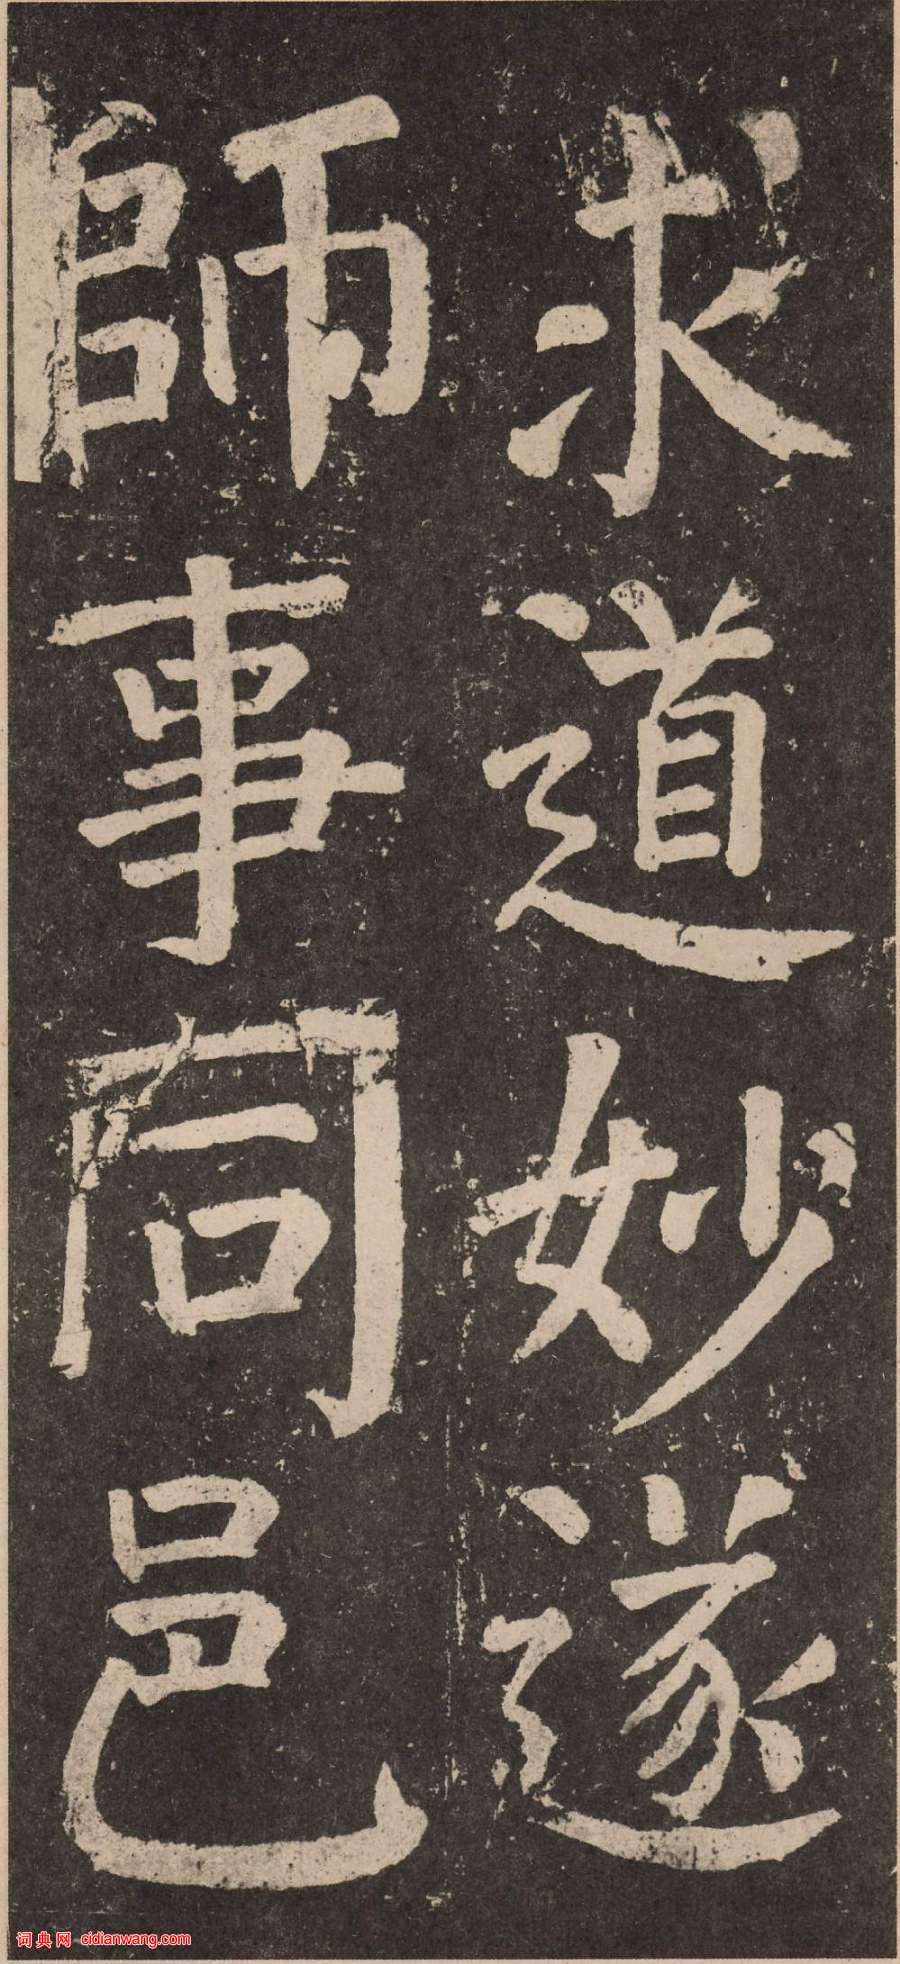 求道妙遂
師事同邑
词典网 cidianwang.com